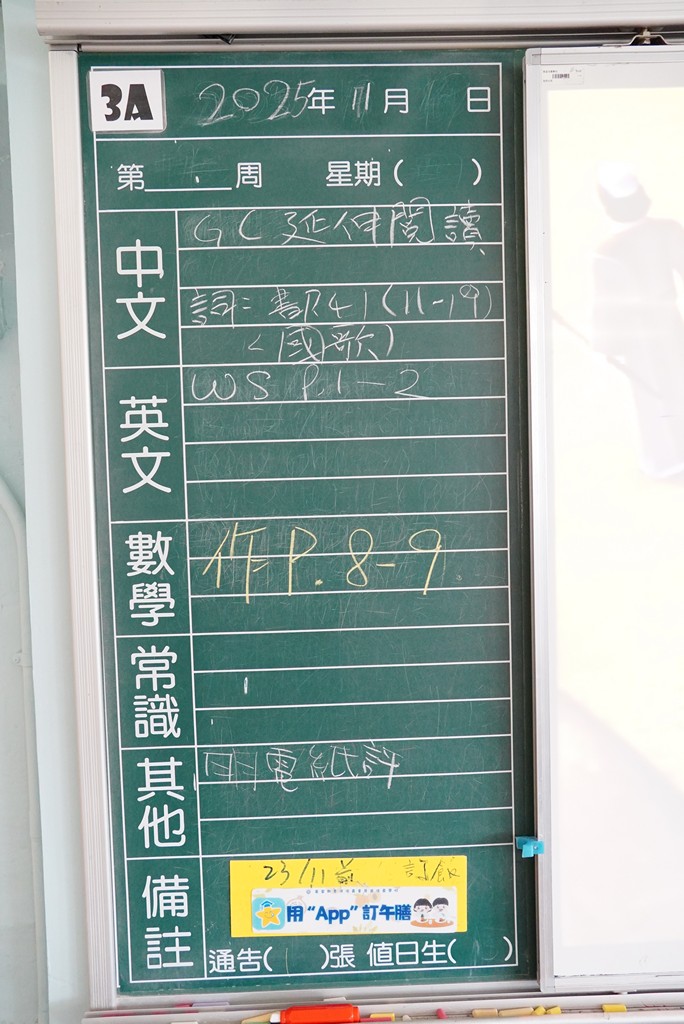 3A 2025年 11月 日
第 周 星期( )
中文
GC 延伸閱讀
詞: 書P.41(11-19)
(國歌)
英文
WS P.1-2
數學
作P.8-9
常識
其他
明電紙評
備註
23/11前 訂飯
用“App”訂午膳
通告( )張 值日生( )